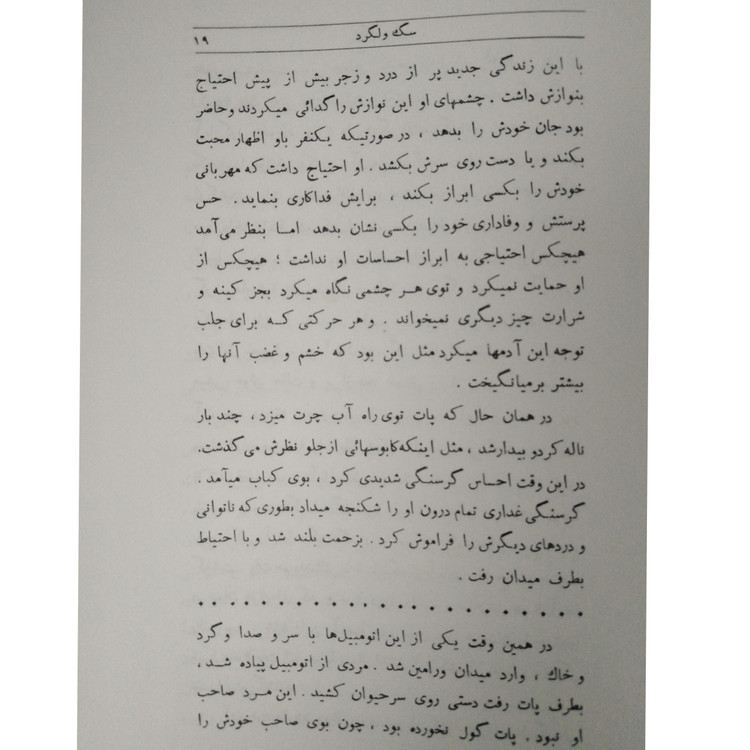 سگ ولگرد ۱۹
با این زندگی جدید پر از درد و زجر بیش از پیش احتیاج
بنوازش داشت . چشمهای او این نوازش را گدائی میکردند و حاضر
بود جان خودش را بدهد ، در صورتیکه یکنفر باو اظهار محبت
بکند و یا دست روی سرش بکشد . او احتیاج داشت که مهربانی
خودش را بکسی ابراز بکند ، برایش فداکاری بنماید . حس
پرستش و وفاداری خود را بکسی نشان بدهد اما بنظر می‌آمد
هیچکس احتیاجی به ابراز احساسات او نداشت ؛ هیچکس از
او حمایت نمیکرد و توی هر چشمی نگاه میکرد بجز کینه و
شرارت چیز دیگری نمیخواند . و هر حرکتی که برای جلب
توجه این آدمها میکرد مثل این بود که خشم و غضب آنها را
بیشتر برمیانگیخت .
در همان حال که پات توی راه آب چرت میزد ، چند بار
ناله کرد و بیدار شد ، مثل اینکه کابوسهائی از جلو نظرش می گذشت.
در این وقت احساس گرسنگی شدیدی کرد ، بوی کباب میآمد .
گرسنگی غداری تمام درون او را شکنجه میداد بطوری که ناتوانی
و دردهای دیگرش را فراموش کرد . بزحمت بلند شد و با احتیاط
بطرف میدان رفت .
. . . . . . . . . . . . . . . . . . . . . . . .
در همین وقت یکی از این اتومبیل‌ها با سر و صدا و گرد
و خاك ، وارد میدان ورامین شد . مردی از اتومبیل پیاده شد ،
بطرف پات رفت دستی روی سر حیوان کشید . این مرد صاحب
او نبود . پات گول نخورده بود ، چون بوی صاحب خودش را